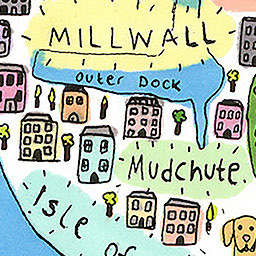 MILLWALL
OUTER DOCK
MUDCHUTE.
Isle
of